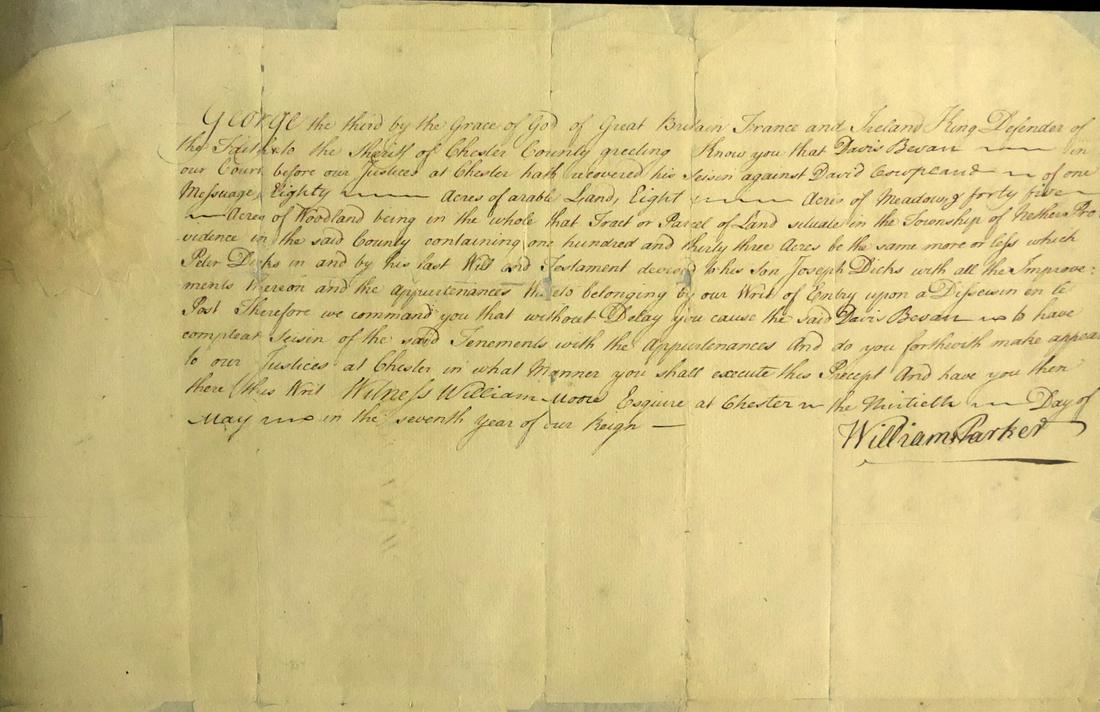 George the third by the Grace of God of Great Britain France and Ireland King Defender of
the Faith &c to the Sheriff of Chester County greeting Know you that Davis Bevan in
our Court before our Justices at Chester hath recovered his Seisin against David Cowpland of one
Messuage, Eighty Acres of arable Land, Eight Acres of Meadow, & forty five
Acres of Woodland being in the whole that Tract or Parcel of Land situate in the Township of Nether Pro-
vidence in the said County containing one hundred and thirty three Acres be the same more or less which
Peter Dicks in and by his last Will and Testament devised to his Son Joseph Dicks with all the Improve:
ments thereon and the Appurtenances thereto belonging by our Writ of Entry upon a Disseisin en le
Post Therefore we command you that without Delay you cause the said Davis Bevan to have
compleat Seisin of the said Tenements with the Appurtenances And do you forthwith make appear
to our Justices at Chester in what Manner you shall execute this Precept And have you then
there this Writ Witness William Moore Esquire at Chester the thirtieth Day of
May in the seventh Year of our Reign
William Parker